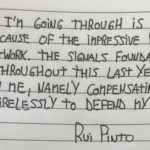 I'M GOING THROUGH IS
CAUSE OF THE IMPRESSIVE
WORK. THE SIGNALS FOUNDA
THROUGHOUT THIS LAST YE
ME, NAMELY COMPENSATIN
IRELESSLY TO DEFEND MY
RUI PINTO